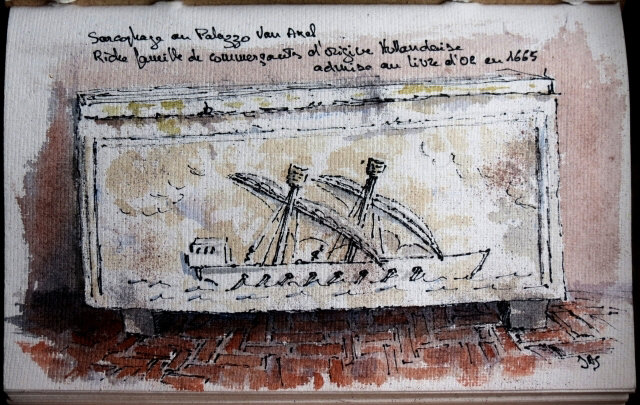 Sarcophage au Palazzo Van Axel
Riche famille de commerçants d'origine Hollandaise
admise au livre d'Or en 1665